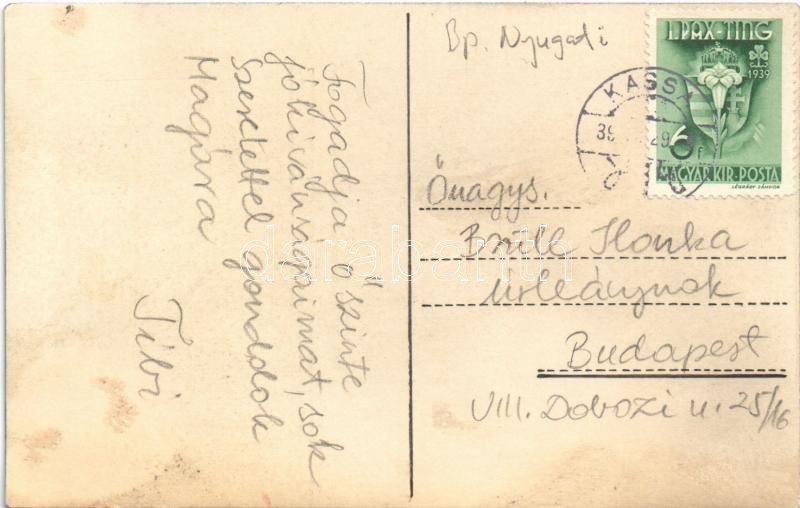 Fogadja őszinte
jókivánságaimat, sok
Szeretettel gondolok
Magára
Tibi
Bp. Nyugati
I. PAX-TING
1939
6 f
MAGYAR KIR. POSTA
LÉGRÁDY SÁNDOR
KASSA
39
29
Őnagys.
Ilonka
Úrleánynak
Budapest
VIII. Dobozi u. 25/16
darabanth